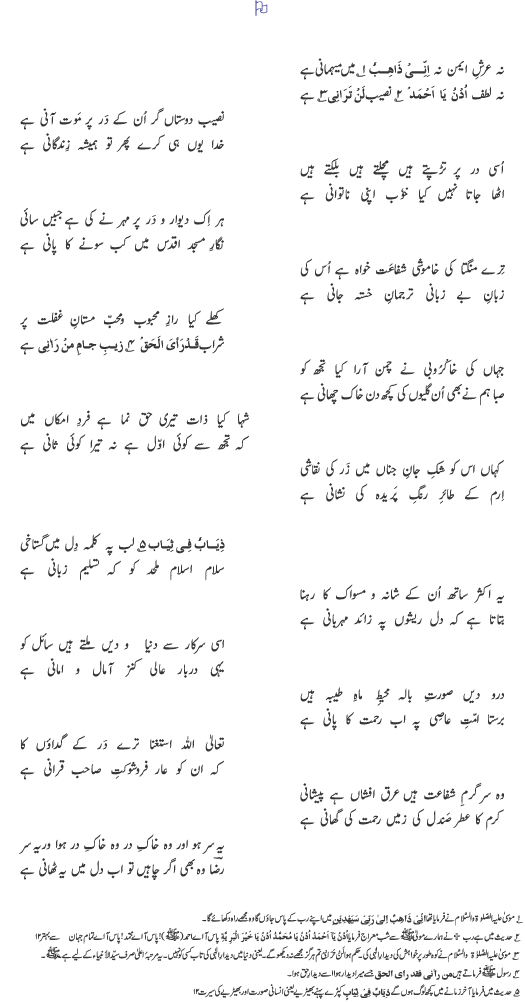 نہ عرشِ ایمن نہ اِنِّیْ ذَاھِبٌ ۱؎ میں میہمانی ہے
نہ لطف اُدْنُ یَا اَحْمَدْ ۲؎ نصیب لَنْ تَرَانِی ۳؎ ہے
نصیب دوستاں گر اُن کے دَر پر مَوت آنی ہے
خدا یوں ہی کرے پھر تو ہمیشہ زِندگانی ہے
اُسی در پر تڑپتے ہیں مچلتے ہیں بلکتے ہیں
اٹھا جاتا نہیں کیا خُوب اپنی ناتوانی ہے
ہر اِک دیوار و دَر پر مہر نے کی ہے جبیں سائی
نگارِ مسجد اقدس میں کب سونے کا پانی ہے
تِرے منگتا کی خاموشی شفاعَت خواہ ہے اُس کی
زبانِ بے زبانی ترجمانِ خستہ جانی ہے
کھلے کیا رازِ محبوب ومُحِبّ مستانِ غفلت پر
شراب قَدْ رَأیَ الْحَقْ ۴؎ زیبِ جامِ مَنْ رَاٰنِی ہے
جہاں کی خاکرُوبی نے چمن آرا کیا تجھ کو
صبا ہم نے بھی اُن گلیوں کی کچھ دن خاک چھانی ہے
شہا کیا ذات تیری حق نما ہے فردِ امکاں میں
کہ تجھ سے کوئی اوّل ہے نہ تیرا کوئی ثانی ہے
کہاں اس کو شکِ جانِ جناں میں زَر کی نقاشی
اِرم کے طائرِ رنگِ پَریدہ کی نشانی ہے
ذِیَابٌ فِیْ ثِیَاب ۵؎ لب پہ کلمہ دِل میں گستاخی
سلام اسلام ملحد کو کہ تسلیم زبانی ہے
یہ اکثر ساتھ اُن کے شانہ و مسواک کا رہنا
بتاتا ہے کہ دل ریشوں پہ زائد مہربانی ہے
اسی سرکار سے دنیا و دیں ملتے ہیں سائل کو
یہی دربار عالی کنز آمال و امانی ہے
درو دیں صورتِ ہالہ محیطِ ماہِ طیبہ ہیں
برستا امّتِ عاصی پہ اب رحمت کا پانی ہے
تعالیٰ اللہ استغنا ترے دَر کے گداؤں کا
کہ ان کو عار فروشوکتِ صاحب قرانی ہے
وہ سرگرمِ شفاعت ہیں عرق افشاں ہے پیشانی
کرم کا عطر صَندل کی زمیں رحمت کی گھانی ہے
یہ سر ہو اور وہ خاکِ در وہ خاکِ در ہو اور یہ سر
رضاؔ وہ بھی اگر چاہیں تو اب دل میں یہ ٹھانی ہے
۱؎ موسیٰ علیہ الصلوٰۃ والسلام نے فرمایا تھا اِنِّیْ ذَاھِبٌ اِلٰی رَبِّیْ سَیَھْدِیْنِ میں اپنے رب کے پاس جاؤں گا وہ مجھے راہ دکھائے گا۔
۲؎ حدیث میں ہے رب نے ہمارے مولیٰ ﷺ سے شب معراج فرمایا اُدْنُ یَا اَحْمَدُ اُدْنُ یَا مُحَمَّدُ اُدْنُ یَا خَیْرَ الْبَرِیَّۃِ پاس آ اے احمد (ﷺ)! پاس آ اے محمد! پاس آ اے تمام جہان سے بہتر ۱۲
۳؎ موسیٰ علیہ الصلوٰۃ والسلام نے کوہ طور پر خواہش کی دیدارِ الٰہی کی حکم ہوا لَنْ تَرَانِی تم ہرگز مجھے نہ دیکھو گے۔ یعنی دنیا میں دیدارِ الٰہی کی تاب کسی کو نہیں۔ یہ مرتبہ اعلیٰ صرف سیّد الانبیاء کے لیے ہے ﷺ۔
۴؎ رسول ﷺ فرماتے ہیں من رانی فقد رای الحق جسے میرا دیدار ہوا اسے دیدارِ حق ہوا۔
۵؎ حدیث میں فرمایا آخر زمانے میں کچھ لوگ ہوں گے ذِیَابٌ فِیْ ثِیَاب کپڑے پہنے بھیڑیے یعنی انسانی صورت اور بھیڑیے کی سیرت ۱۲